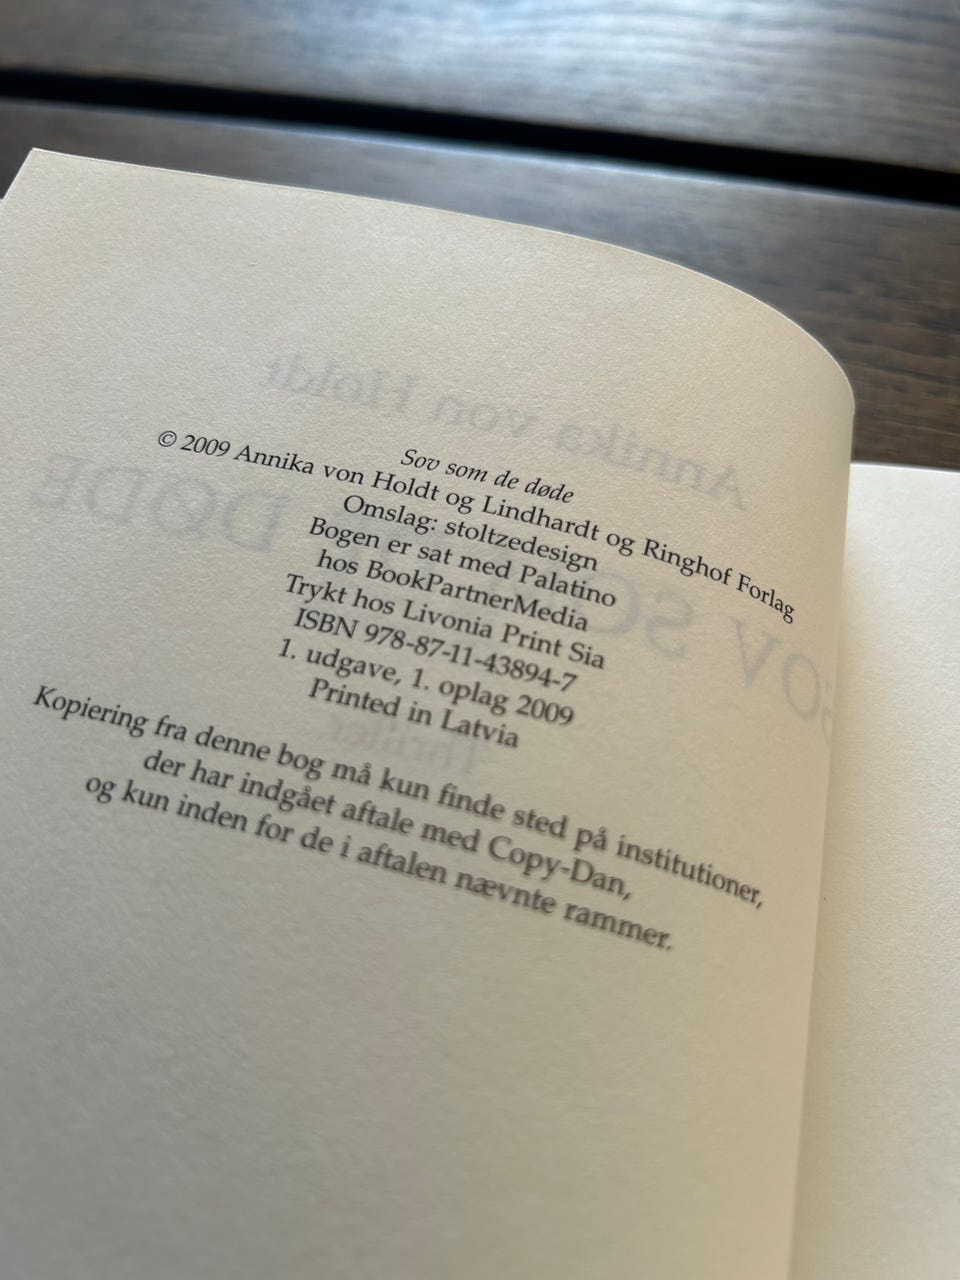 Sov som de døde
© 2009 Annika von Holdt og Lindhardt og Ringhof Forlag
Omslag: stoltzedesign
Bogen er sat med Palatino
hos BookPartnerMedia
Trykt hos Livonia Print Sia
ISBN 978-87-11-43894-7
1. udgave, 1. oplag 2009
Printed in Latvia
Kopiering fra denne bog må kun finde sted på institutioner,
der har indgået aftale med Copy-Dan,
og kun inden for de i aftalen nævnte rammer.